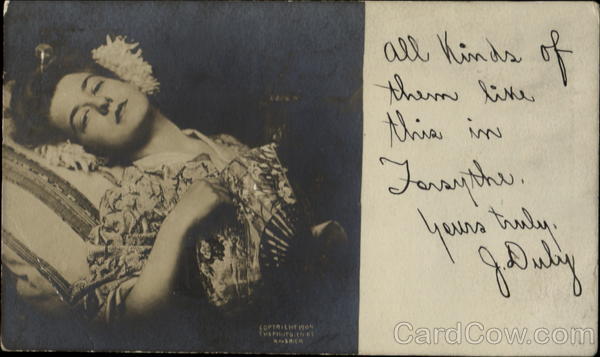 all kinds of
them like
this in
Forsythe.
yours truly,
J. Duby
COPYRIGHT 1904
AMERICA
CardCow.com